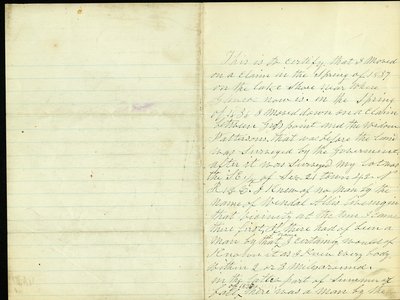 This is to certify, that I Moved
on a claim in the Spring of 1837
on the lake Shore near where
Glencoe now is. in the Spring
of 1838 I Moved down on a claim
between Gros point and the Widow
Pattersons. that was before the land
was Surveyed by the Government
after it was Surveyed my lot was
the S.E. of Sec. 21 town 42 N
R 13 E. I Know of no Man by the
Name of Wendal Alles living in
that vicinity at the time I came
there first, if there had of been a
Man by that I certainly would of
Known it as I Knew every body
within 2 or 3 Miles around.
in the latter part of Summer or
fall there was a man by the